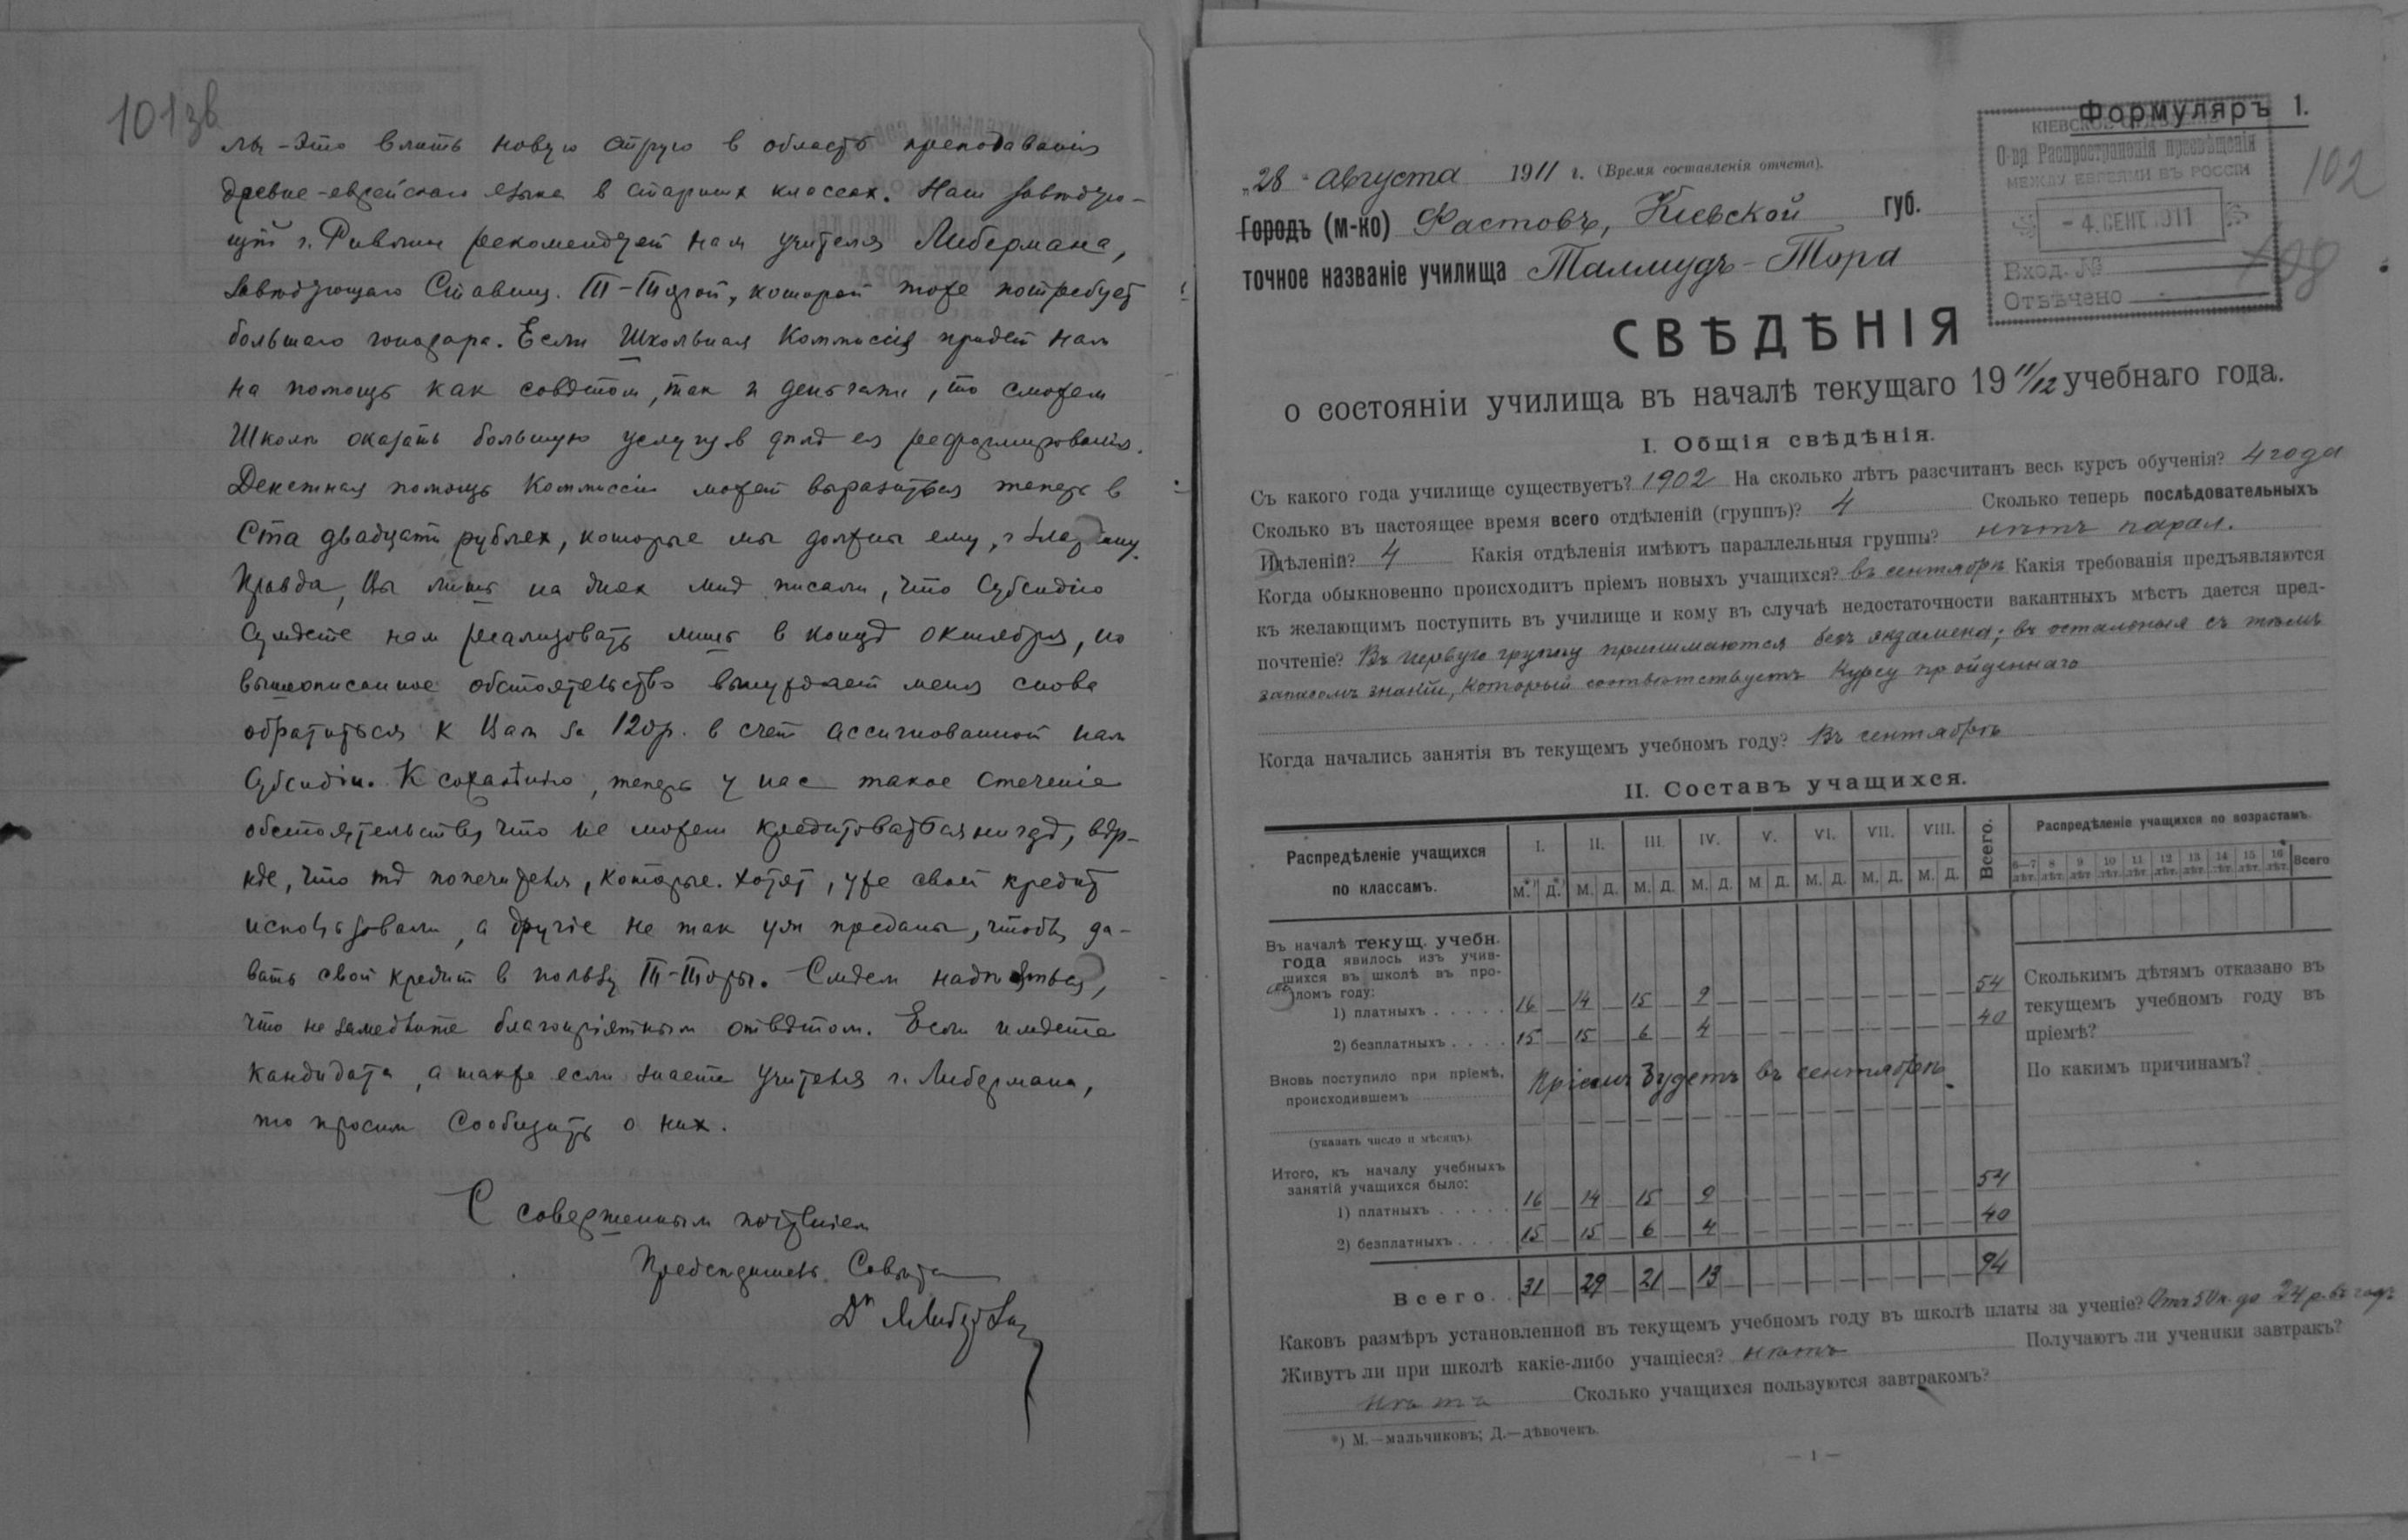 101зв
лы - это влить новую струю в область преподаванія
древне-еврейскаго языка в старших классах. Наш завѣдую-
щій г. Ривкин рекомендует нам учителя Либермана,
завѣдующаго Ставищ. Т-Торой, который тоже потребует
большаго гонорара. Если Школьная Коммиссія придет нам
на помощь как совѣтом, так и деньгами, то сможем
Школѣ оказать большую услугу в дѣлѣ ея реформированія.
Денежная помощь Коммиссіи может выразиться теперь в
Ста двадцати рублях, которые мы должны ему, г
Правда, Вы лишь на днях мнѣ писали, что Субсидію
сумѣете нам реализовать лишь в концѣ октября, но
вышеописанное обстоятельство вынуждает меня снова
обратиться к Вам за 120р. в счет ассигнованной нам
Субсидіи. К сожалѣнію, теперь у нас такое стеченіе
обстоятельств, что не можем кредитоваться нигдѣ,
что тѣ попечители, которые хотят, уже свой кредит
использовали, а другіе не так уж преданы, чтобы да-
вать свой кредит в пользу Т-Торы. Смѣем надѣяться,
что не замедлите благопріятным отвѣтом. Если имѣете
кандидата, а также если знаете учителя г. Либермана,
то просим сообщить о них.
С совершенным почтеніем
Предсѣдатель Совѣта
Dr
Формуляръ 1.
КІЕВСКОЕ ОТДѢЛЕНІЕ
О-ва Распространенія просвѣщенія
МЕЖДУ ЕВРЕЯМИ ВЪ РОССІИ
- 4. СЕНТ. 1911
Вход. №
Отвѣчено
102
108
„28" Августа 1911 г. (Время составленія отчета).
Городъ (м-ко) Фастовъ, Кіевской губ.
точное названіе училища Талмудъ-Тора
СВѢДѢНІЯ
о состояніи училища въ началѣ текущаго 19 11/12 учебнаго года.
I. Общія свѣдѣнія.
Съ какого года училище существуетъ? 1902 На сколько лѣтъ разсчитанъ весь курсъ обученія? 4 года
Сколько въ настоящее время всего отдѣленій (группъ)? 4 Сколько теперь послѣдовательныхъ
дѣленій? 4 Какія отдѣленія имѣютъ параллельныя группы? нѣтъ парал.
Когда обыкновенно происходитъ пріемъ новыхъ учащихся? въ сентябрѣ Какія требованія предъявляются
къ желающимъ поступить въ училище и кому въ случаѣ недостаточности вакантныхъ мѣстъ дается пред-
почтеніе? Въ первую группу принимаются безъ экзамена; въ остальныя съ тѣмъ
запасомъ знаній, который соотвѣтствуетъ курсу пройденнаго
Когда начались занятія въ текущемъ учебномъ году? Въ сентябрѣ
II. Составъ учащихся.
Распредѣленіе учащихся по классамъ. I. II. III. IV. V. VI. VII. VIII. Всего. Распредѣленіе учащихся по возрастамъ
М.*) Д.*) М. Д. М. Д. М. Д. М Д. М. Д. М. Д. М. Д. 6—7 лѣт. 8 лѣт. 9 лѣт 10 лѣт. 11 лѣт. 12 лѣт. 13 лѣт. 14 лѣт. 15 лѣт. 16 лѣт. Всего
Въ началѣ текущ. учебн.
года явилось изъ учив-
шихся въ школѣ въ про-
ломъ году:
1) платныхъ . . . . . 16 — 14 — 15 — 9 — — — — — — — — — 54
2) безплатныхъ . . . . 15 — 15 — 6 — 4 — — — — — — — — — 40
Вновь поступило при пріемѣ,
происходившемъ
Пріемъ будетъ въ сентябрѣ.
(указать число и мѣсяцъ).
Итого, къ началу учебныхъ
занятій учащихся было:
1) платныхъ . . . . . 16 — 14 — 15 — 9 — — — — — — — — — 54
2) безплатныхъ . . . . 15 — 15 — 6 — 4 — — — — — — — — — 40
Всего . . 31 — 29 — 21 — 13 — — — — — — — — — 94
Сколькимъ дѣтямъ отказано въ
текущемъ учебномъ году въ
пріемѣ?
По какимъ причинамъ?
Каковъ размѣръ установленной въ текущемъ учебномъ году въ школѣ платы за ученіе? Отъ 50 к. до 24 р. въ годъ
Живутъ ли при школѣ какіе-либо учащіеся? нѣтъ Получаютъ ли ученики завтракъ?
нѣтъ Сколько учащихся пользуются завтракомъ?
*) М.—мальчиковъ; Д.—дѣвочекъ.
— 1 —